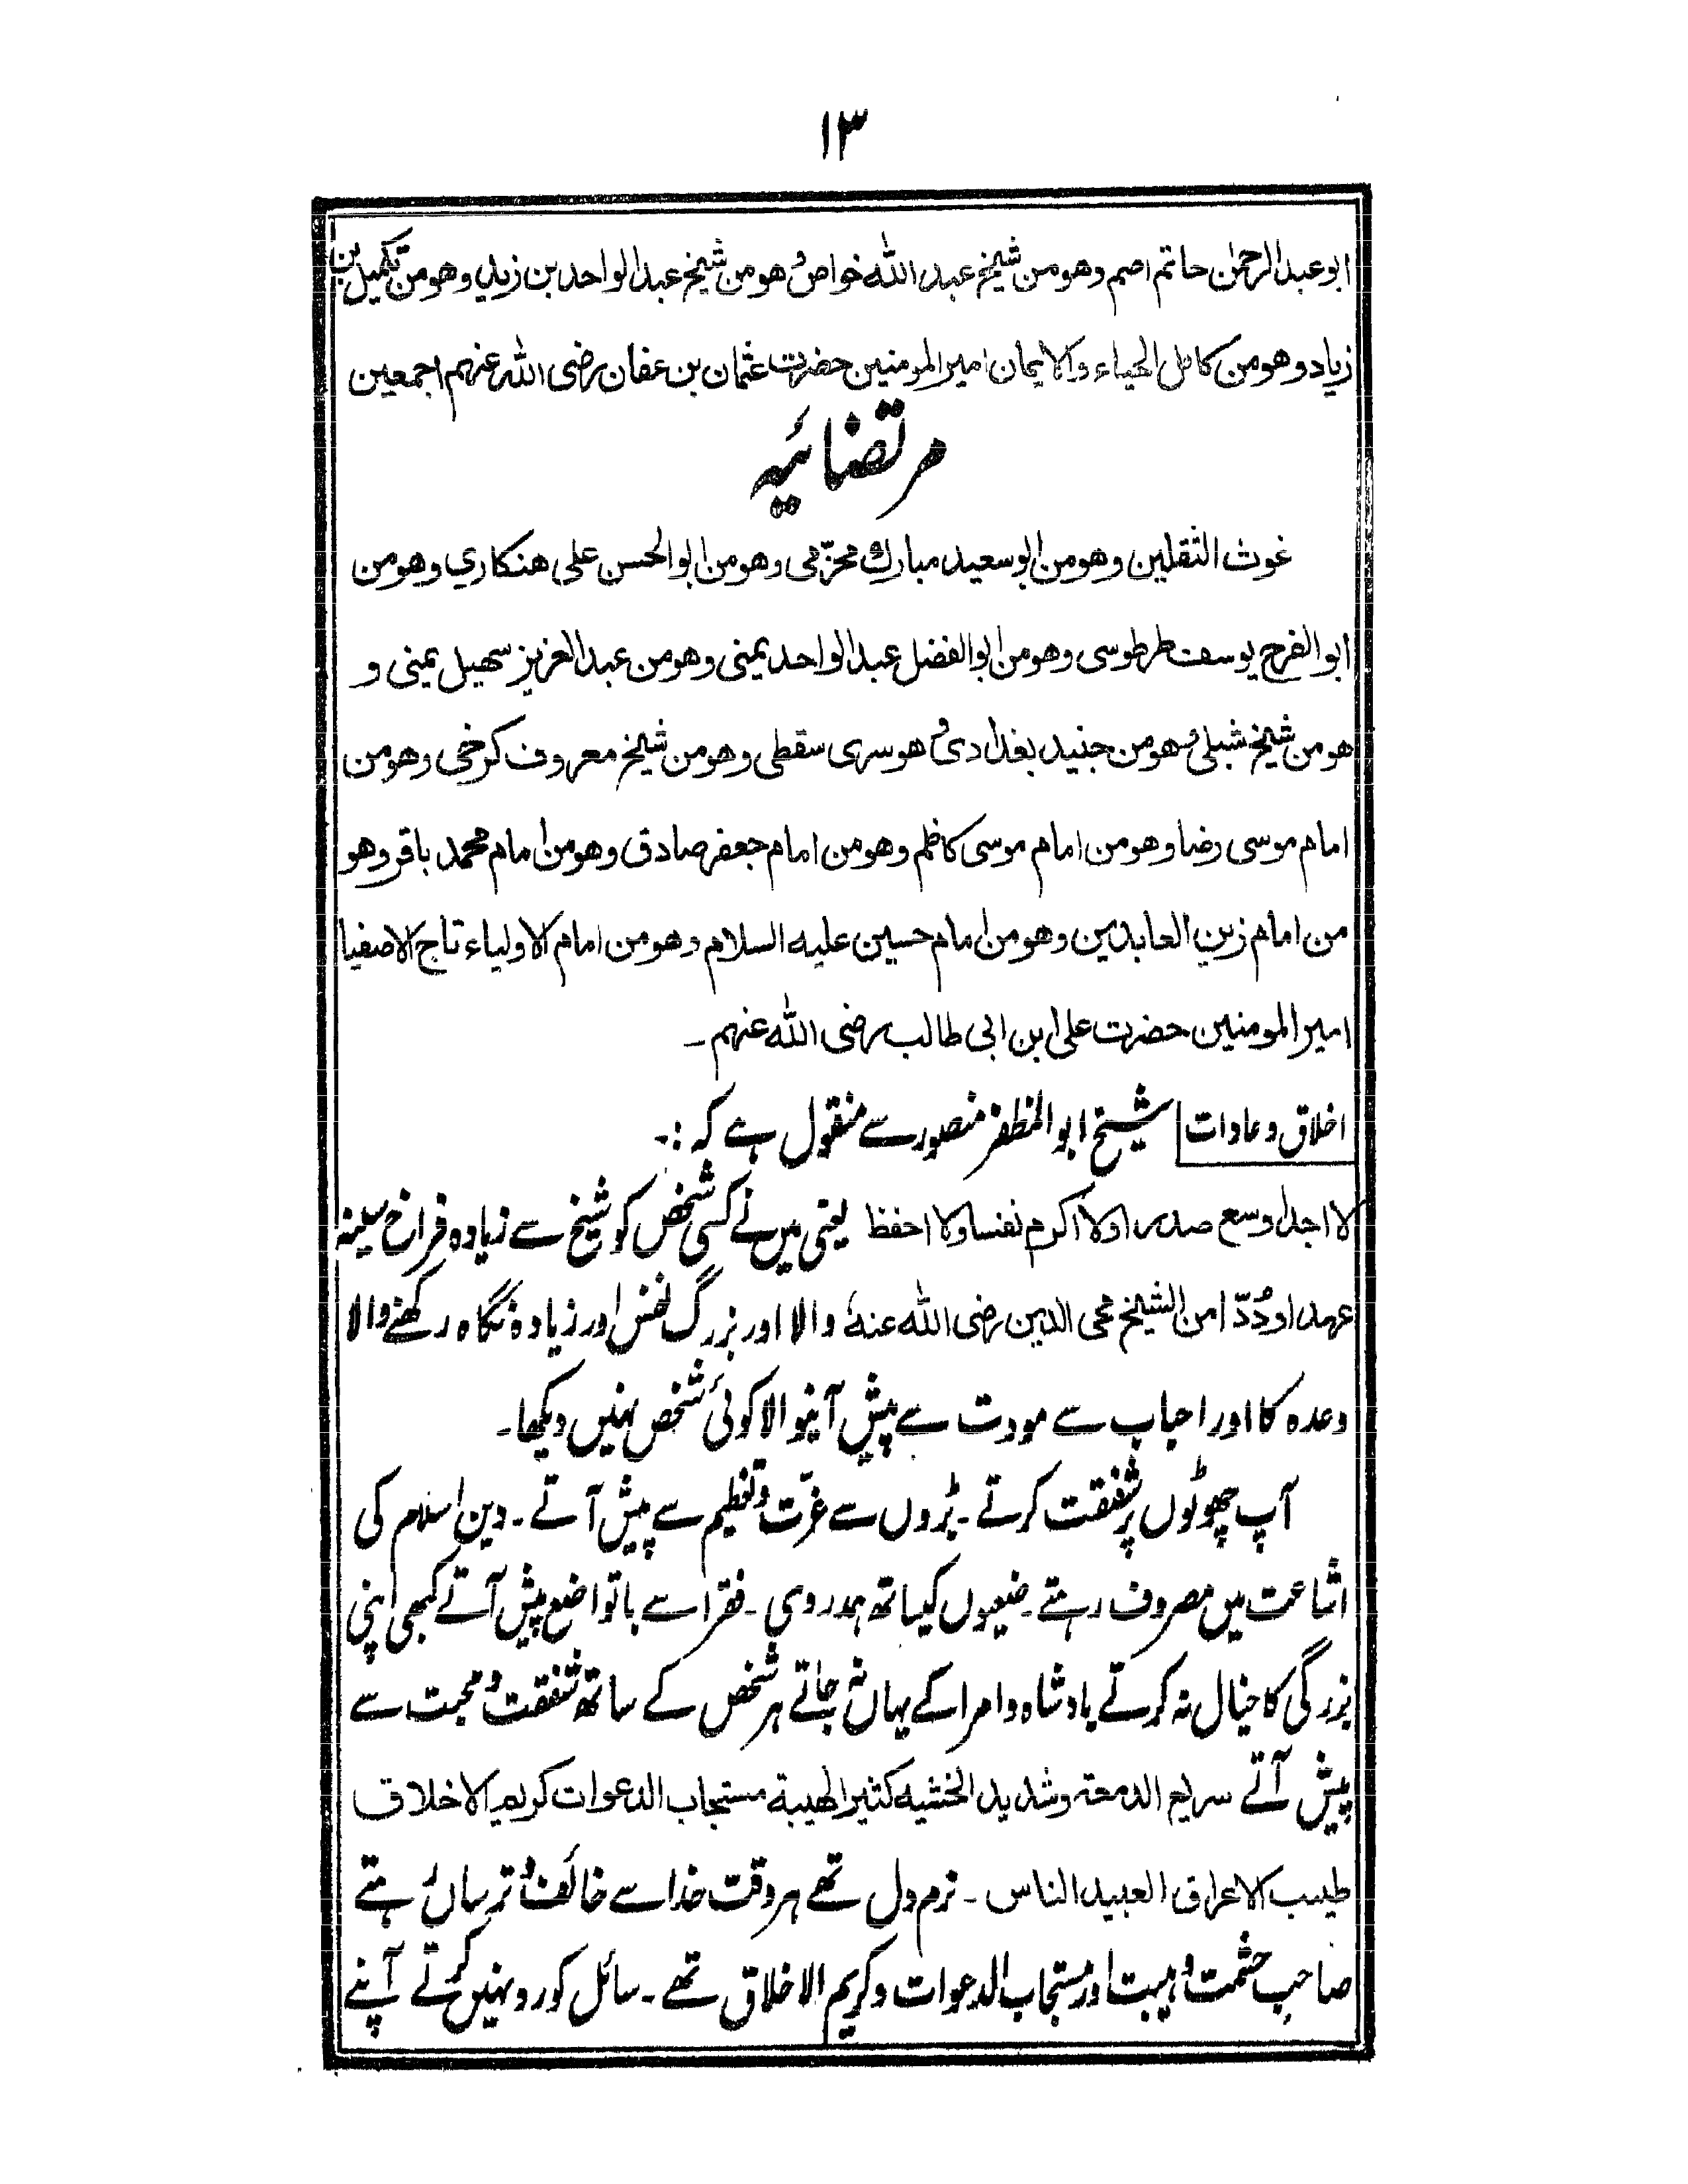 ۱۳
ابو عبد الرحمٰن حاتم اصم وهو من شیخ عبد الله خواص وهو من شیخ عبد الواحد بن زید وهو من تکمیل بن
زیاد وهو من کامل الحیاء والایمان امیر المومنین حضرت عثمان بن عفان رضی الله عنهم اجمعین
مرتضائیہ
غوث الثقلین وهو من ابو سعید مبارك محزّمی وهو من ابو الحسن علی هنکاری وهو من
ابو الفرح یوسف طرطوسی وهو من ابو الفضل عبد الواحد یمنی وهو من عبد العزیز سهیل یمنی و
هو من شیخ شبلی وهو من جنید بغدادی و هو سری سقطی وهو من شیخ معروف کرخی وهو من
امام موسی رضا وهو من امام موسی کاظم وهو من امام جعفر صادق وهو من امام محمد باقر وهو
من امام زین العابدین وهو من امام حسین علیه السلام وهو من امام الاولیاء تاج الاصفیا
امیر المومنین حضرت علی ابن ابی طالب رضی الله عنهم ۔
اخلاق و عادات شیخ ابو المظفر منصور سے منقول ہے کہ :۔
لا اجد اوسع صدرا ولا اکرم نفسا ولا احفظ یعنی میں نے کسی شخص کو شیخ سے زیادہ فراخ سینہ
عهدا و دُدّا من الشیخ محی الدین رضی الله عنه والا اور بزرگ نفس اور زیادہ نگاہ رکھنے والا
وعدہ کا اور احباب سے مودت سے پیش آنیوالا کوئی شخص نہیں دیکھا۔
آپ چھوٹوں پر شفقت کرتے ۔ بڑوں سے عزّت و تعظیم سے پیش آتے ۔ دین اسلام کی
اشاعت میں مصروف رہتے ۔ ضیعوں کیساتھ ہمدردی ۔ فقرا سے باتواضع پیش آتے کبھی اپنی
بزرگی کا خیال نہ کرتے بادشاہ و امرا کے یہاں نہ جاتے ہر شخص کے ساتھ شفقت و محبت سے
پیش آتے سریع الدمعتہ وشدید الخشیه کثیر الهیبة مستجاب الدعوات کریم الاخلاق
طیب الاعراق العبید الناس ۔ نرم دل تھے ہر وقت خدا سے خائف و ترساں رہتے
صاحب حشمت و ہیبت اور مستجاب الدعوات و کریم الاخلاق تھے ۔ سائل کو رد نہیں کرتے آپنے